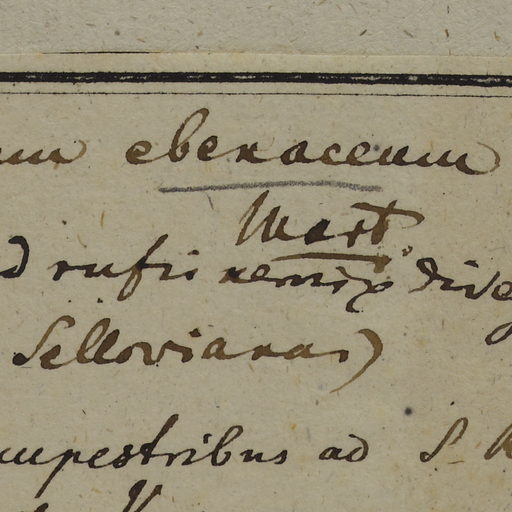 um ebenaceum
Mart.
d rufi nervix dive
Sellovianas)
mpestribus ad S.